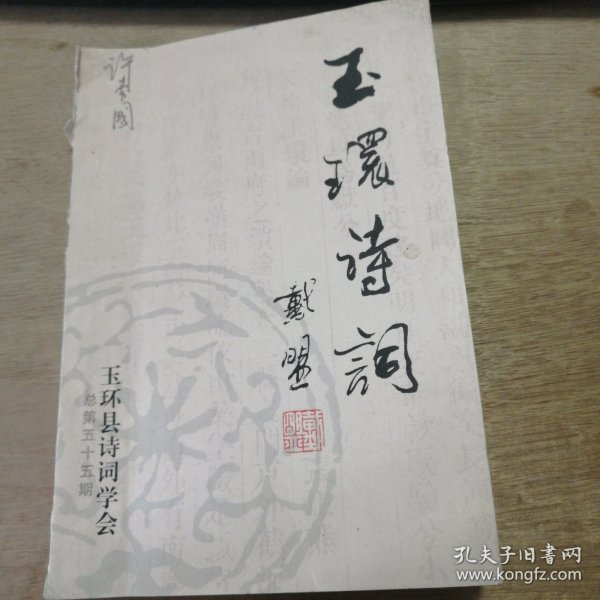 玉環诗詞
戴盟
玉环县诗词学会
总第五十五期
孔夫子旧书网
www.kongfz.com